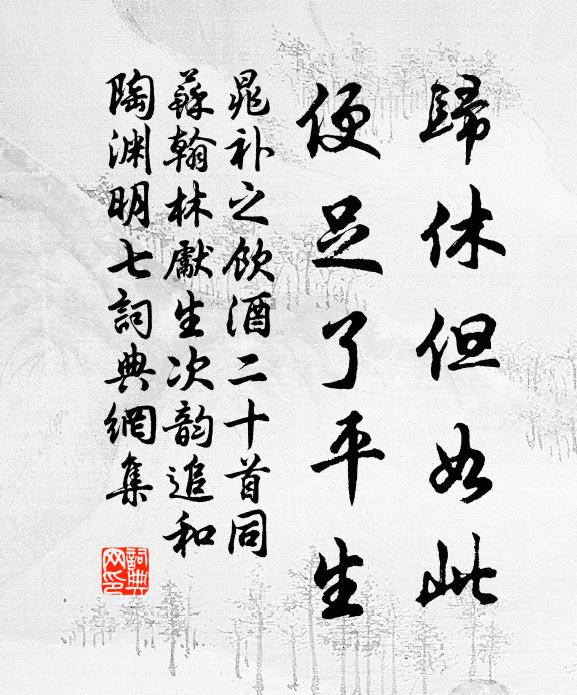 歸休但如此
便足了平生
晁补之飲酒二十首同
蘇翰林獻生次韵追和
陶渊明七詞典網集
詞典
网印